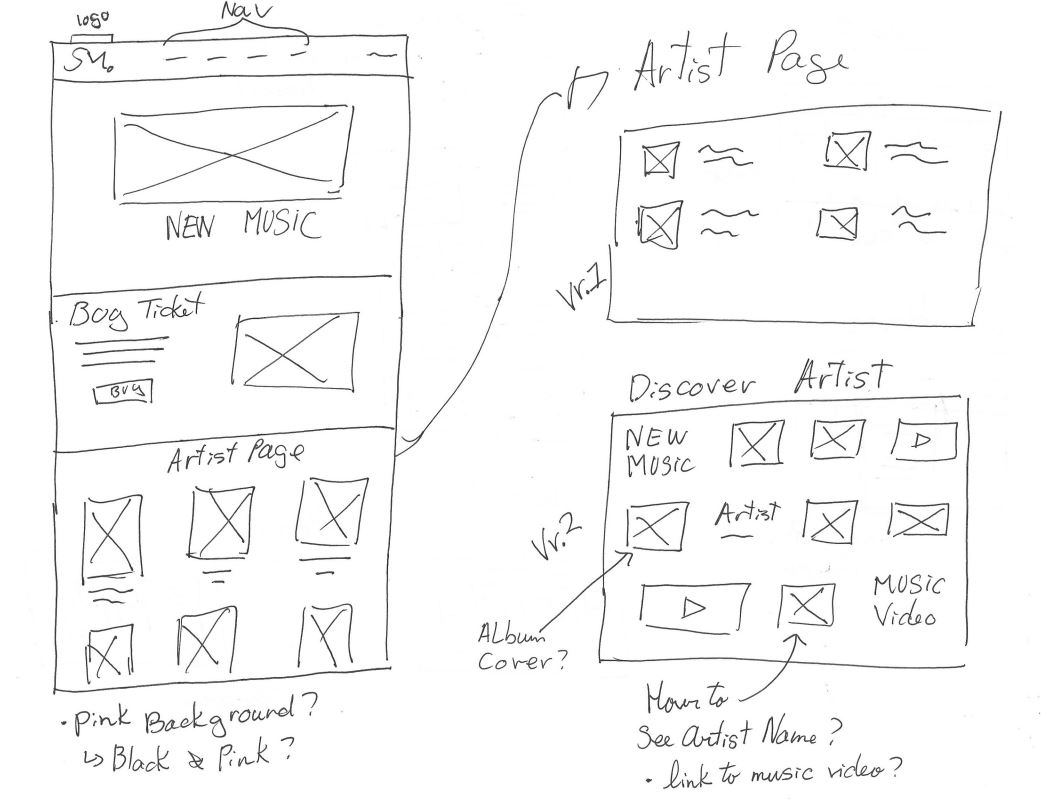 logo
Nav
SM.
NEW MUSIC
Buy Ticket
BUY
Artist Page
• Pink Background?
↳ Black & Pink?
Artist Page
Vr.1
Discover Artist
NEW
MUSIC
Artist
Vr.2
MUSIC
Video
Album
Cover?
Hover to
See Artist Name?
• link to music video?